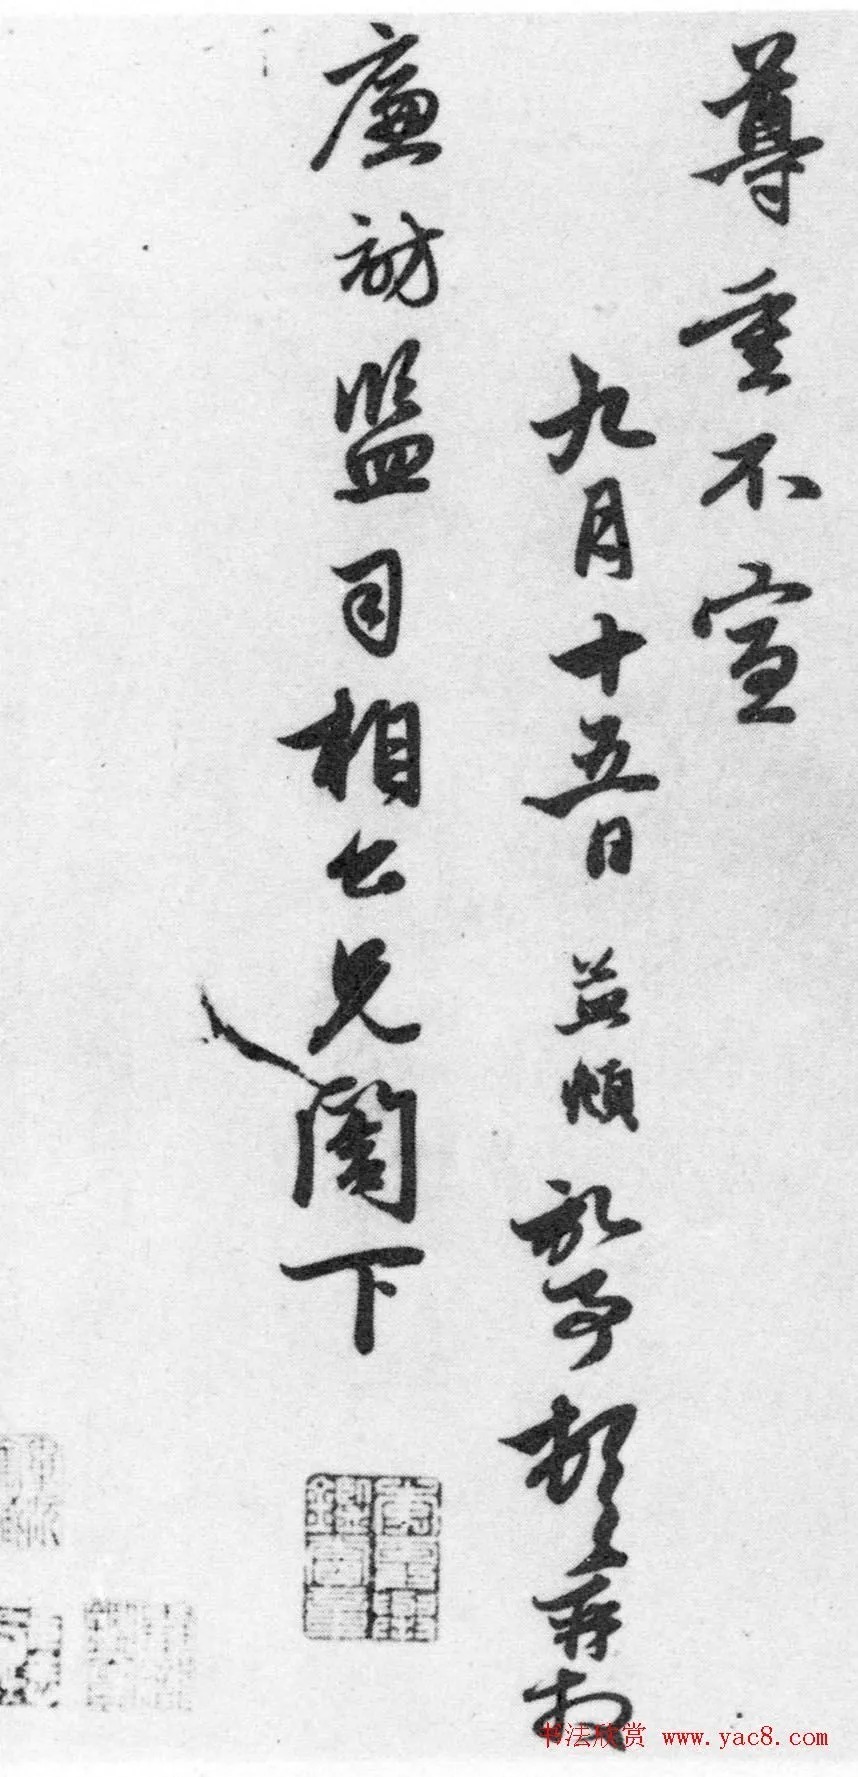 尊重不宣
九月十五日 孤子 再拜
廉訪監司相公兄閣下
书法欣赏 www.yac8.com